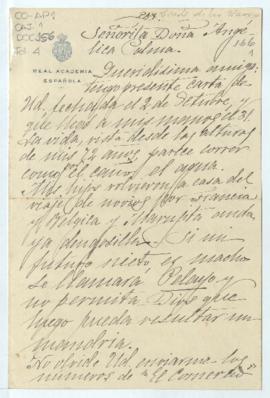 CO-AP1
CAJ. 1
DOC 156
Fol 4
166
1
REAL ACADEMIA
ESPAÑOLA
Señorita Doña Ange
lica Palma.
Queridísima amiga:
tengo presente carta de
Ud, fechada el 2 de Octubre, y
que llegó a mis manos el 31.
La vida, vista desde las alturas
de mis 72 años, parece correr
como el caño el agua.
Mis hijos volvieron a casa del
viaje de novios por Francia
y Bélgica y Maruxita anda
ya dengosilla. Si mi
futuro nieto es macho
se llamará Pelayo, y
no permita Dios que
luego pueda resultar un
mandria.
No olvide Ud. enviarme los
números de "El Comercio"